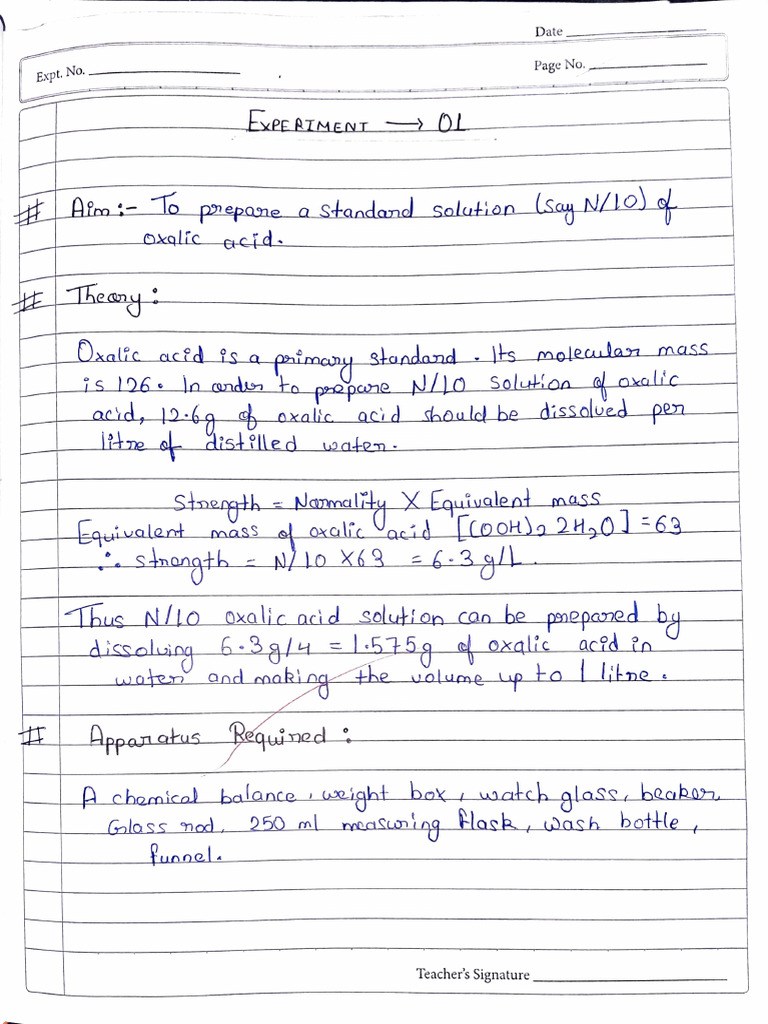 Date
Expt. No.
Page No.
EXPERIMENT → 01
# Aim :- To prepare a standard solution (say N/10) of
oxalic acid.
# Theory :
Oxalic acid is a primary standard. Its molecular mass
is 126. In order to prepare N/10 solution of oxalic
acid, 12.6g of oxalic acid should be dissolved per
litre of distilled water.
Strength = Normality X Equivalent mass
Equivalent mass of oxalic acid [(COOH)2 2H2O] = 63
∴ strength = N/10 X63 = 6.3 g/L.
Thus N/10 oxalic acid solution can be prepared by
dissolving 6.3g/4 = 1.575g of oxalic acid in
water and making the volume up to 1 litre.
# Apparatus Required :
A chemical balance, weight box, watch glass, beaker,
Glass rod, 250 ml measuring flask, wash bottle,
funnel.
Teacher's Signature